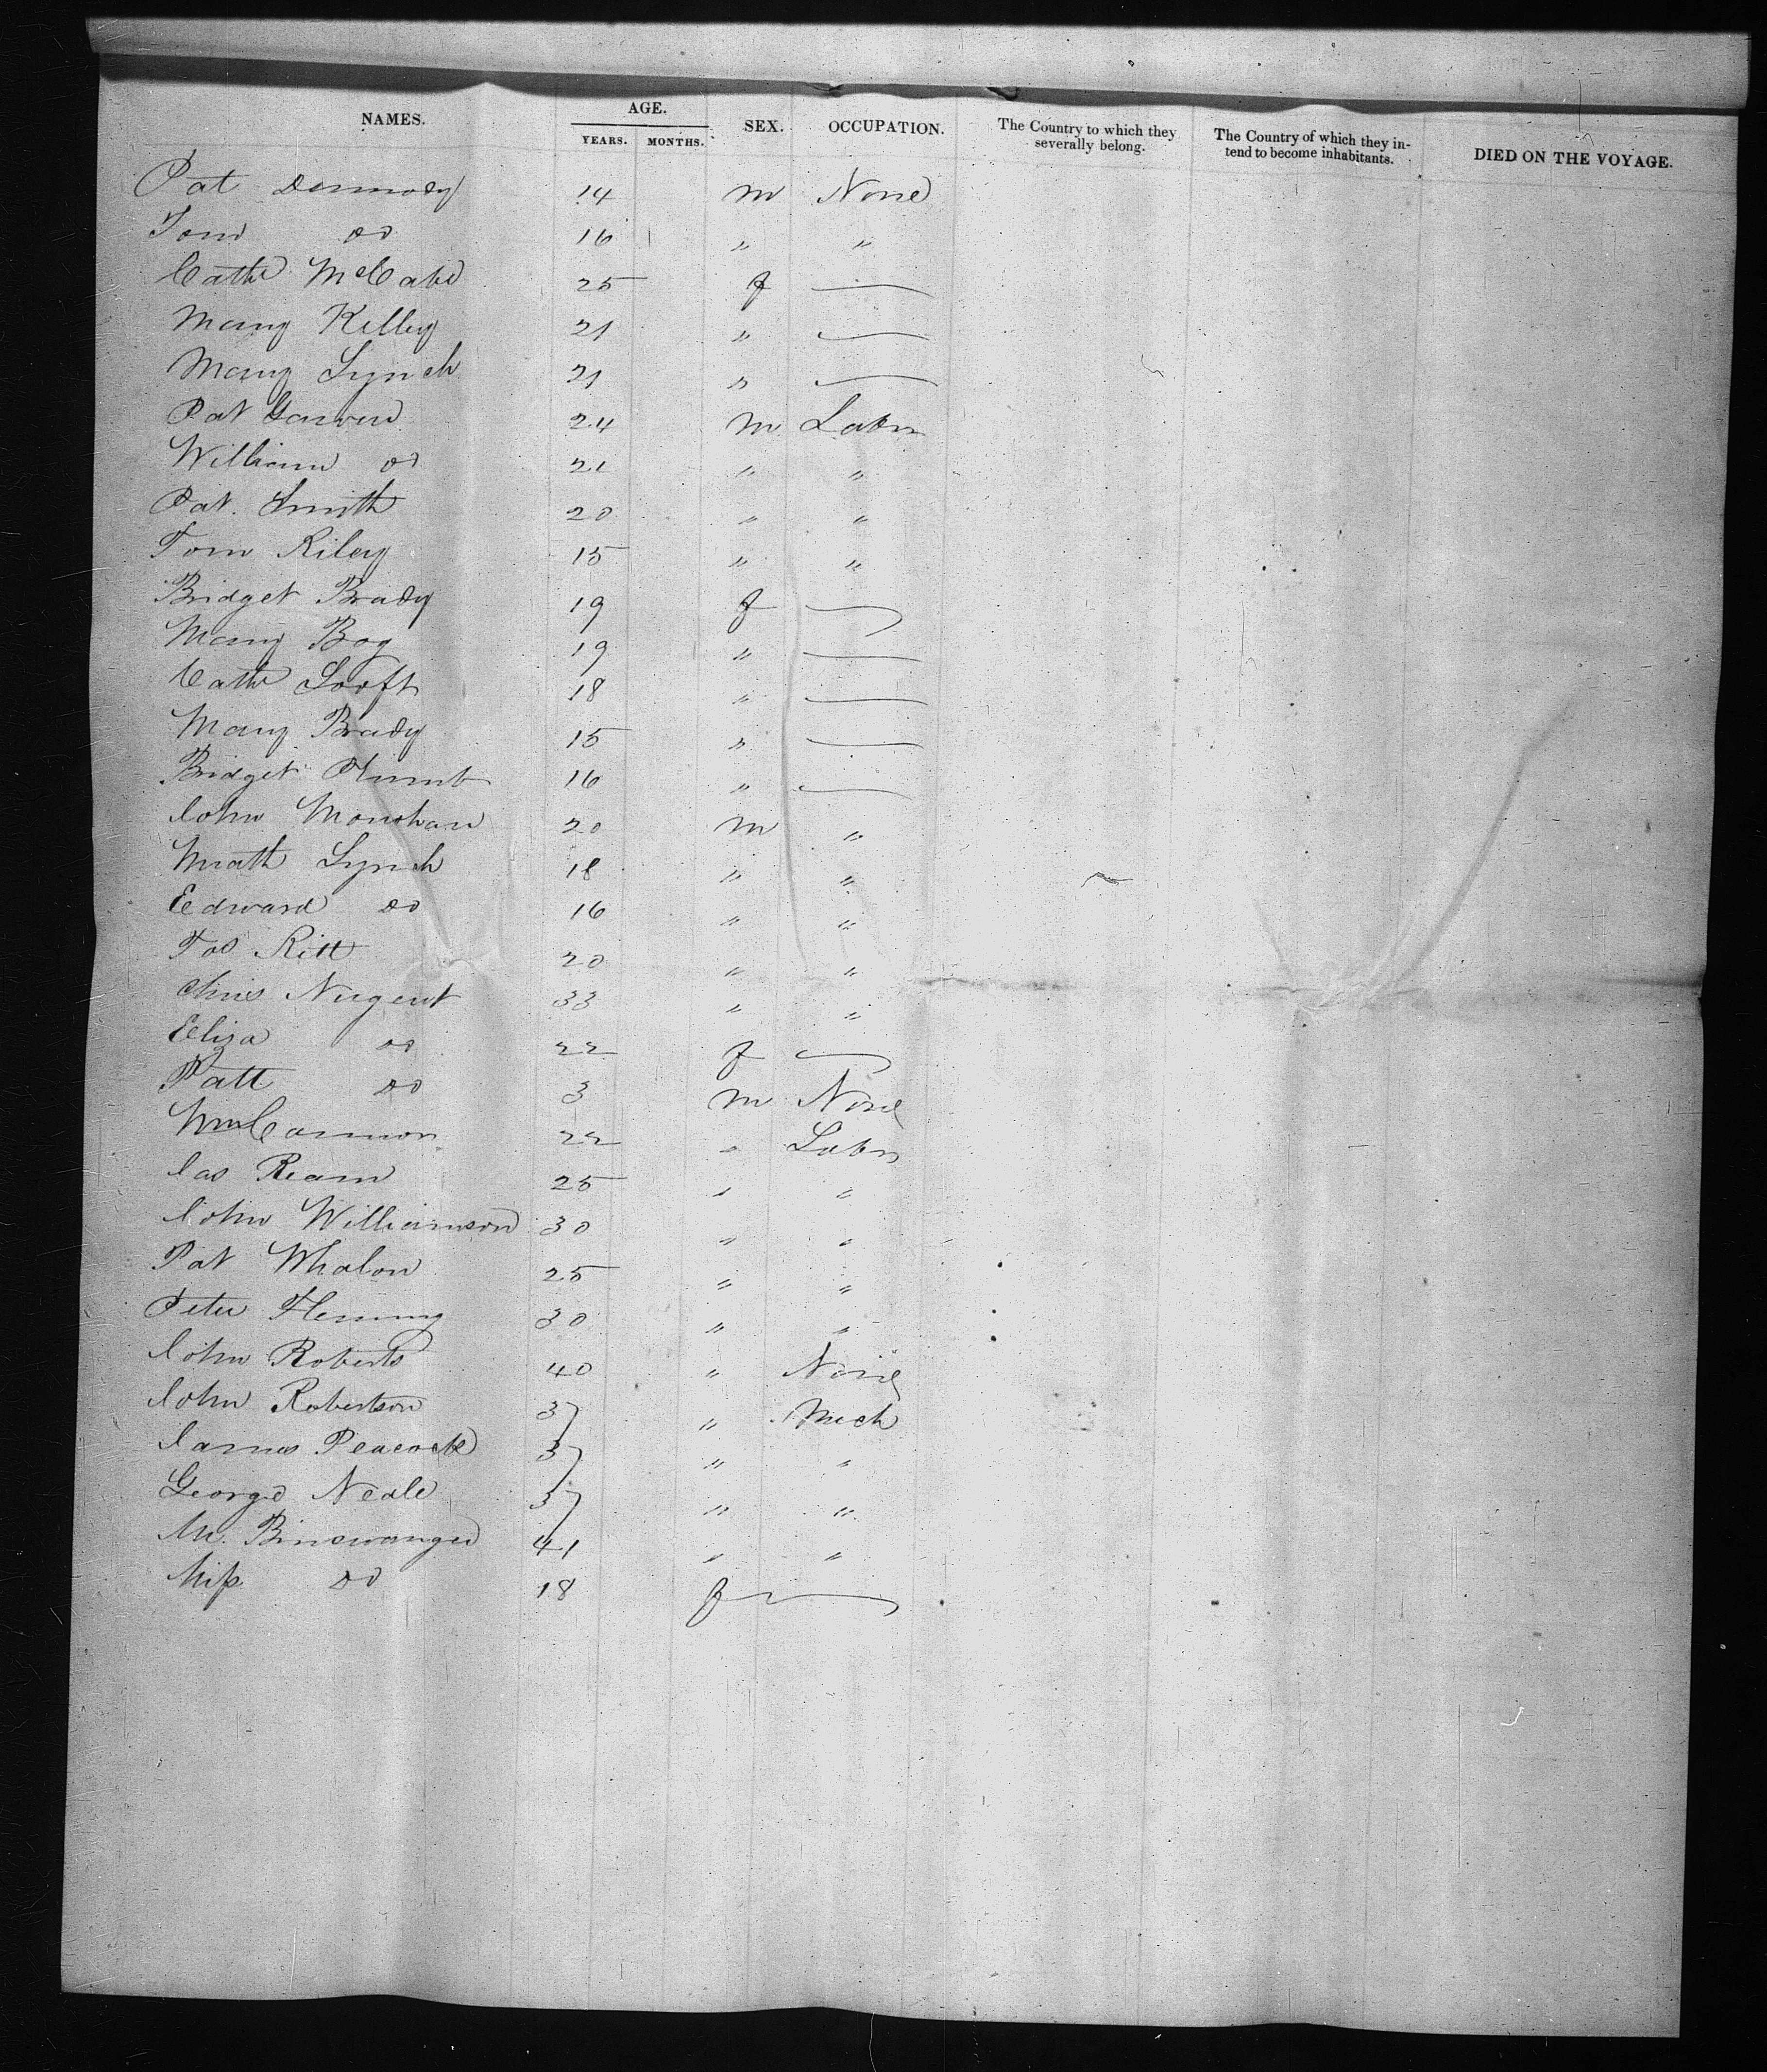 NAMES. AGE. YEARS. MONTHS. SEX. OCCUPATION. The Country to which they severally belong. The Country of which they intend to become inhabitants. DIED ON THE VOYAGE.
Pat Dermody 14 m None
Tom do 16 " "
Cathe McCabe 25 f —
Mary Kelley 21 " —
Mary Lynch 21 " —
Pat Garven 24 m Labr
William do 21 " "
Pat. Smith 20 " "
Tom Riley 15 " "
Bridget Brady 19 f —
Mary Boy 19 " —
Cathe 18 " —
Mary Brady 15 " —
Bridget 16 " —
John Monohan 20 m "
Math Lynch 18 " "
Edward do 16 " "
Tos Ritt 20 " "
Chris Nugent 33 " "
Eliza do 22 f —
Patt do 3 m None
Wm Cannon 22 " Labr
Jas Ream 25 " "
John Williamson 30 " "
Pat Whalon 25 " "
Peter Fleming 30 " "
John Roberts 40 " None
John Robertson 37 " Mech
James Peacock 37 " "
George Neale 37 " "
Mr. Binswanger 41 " "
Miss do 18 f —